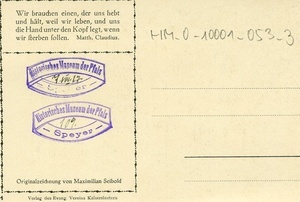 Wir brauchen einen, der uns hebt
und hält, weil wir leben, und uns
die Hand unter den Kopf legt, wenn
wir sterben sollen. Matth. Claudius.
HM-0-10001-053-3
Historisches Museum der Pfalz
Speyer
Historisches Museum der Pfalz
Speyer
Originalzeichnung von Maximilian Seibold
Verlag des Evang. Vereins Kaiserslautern